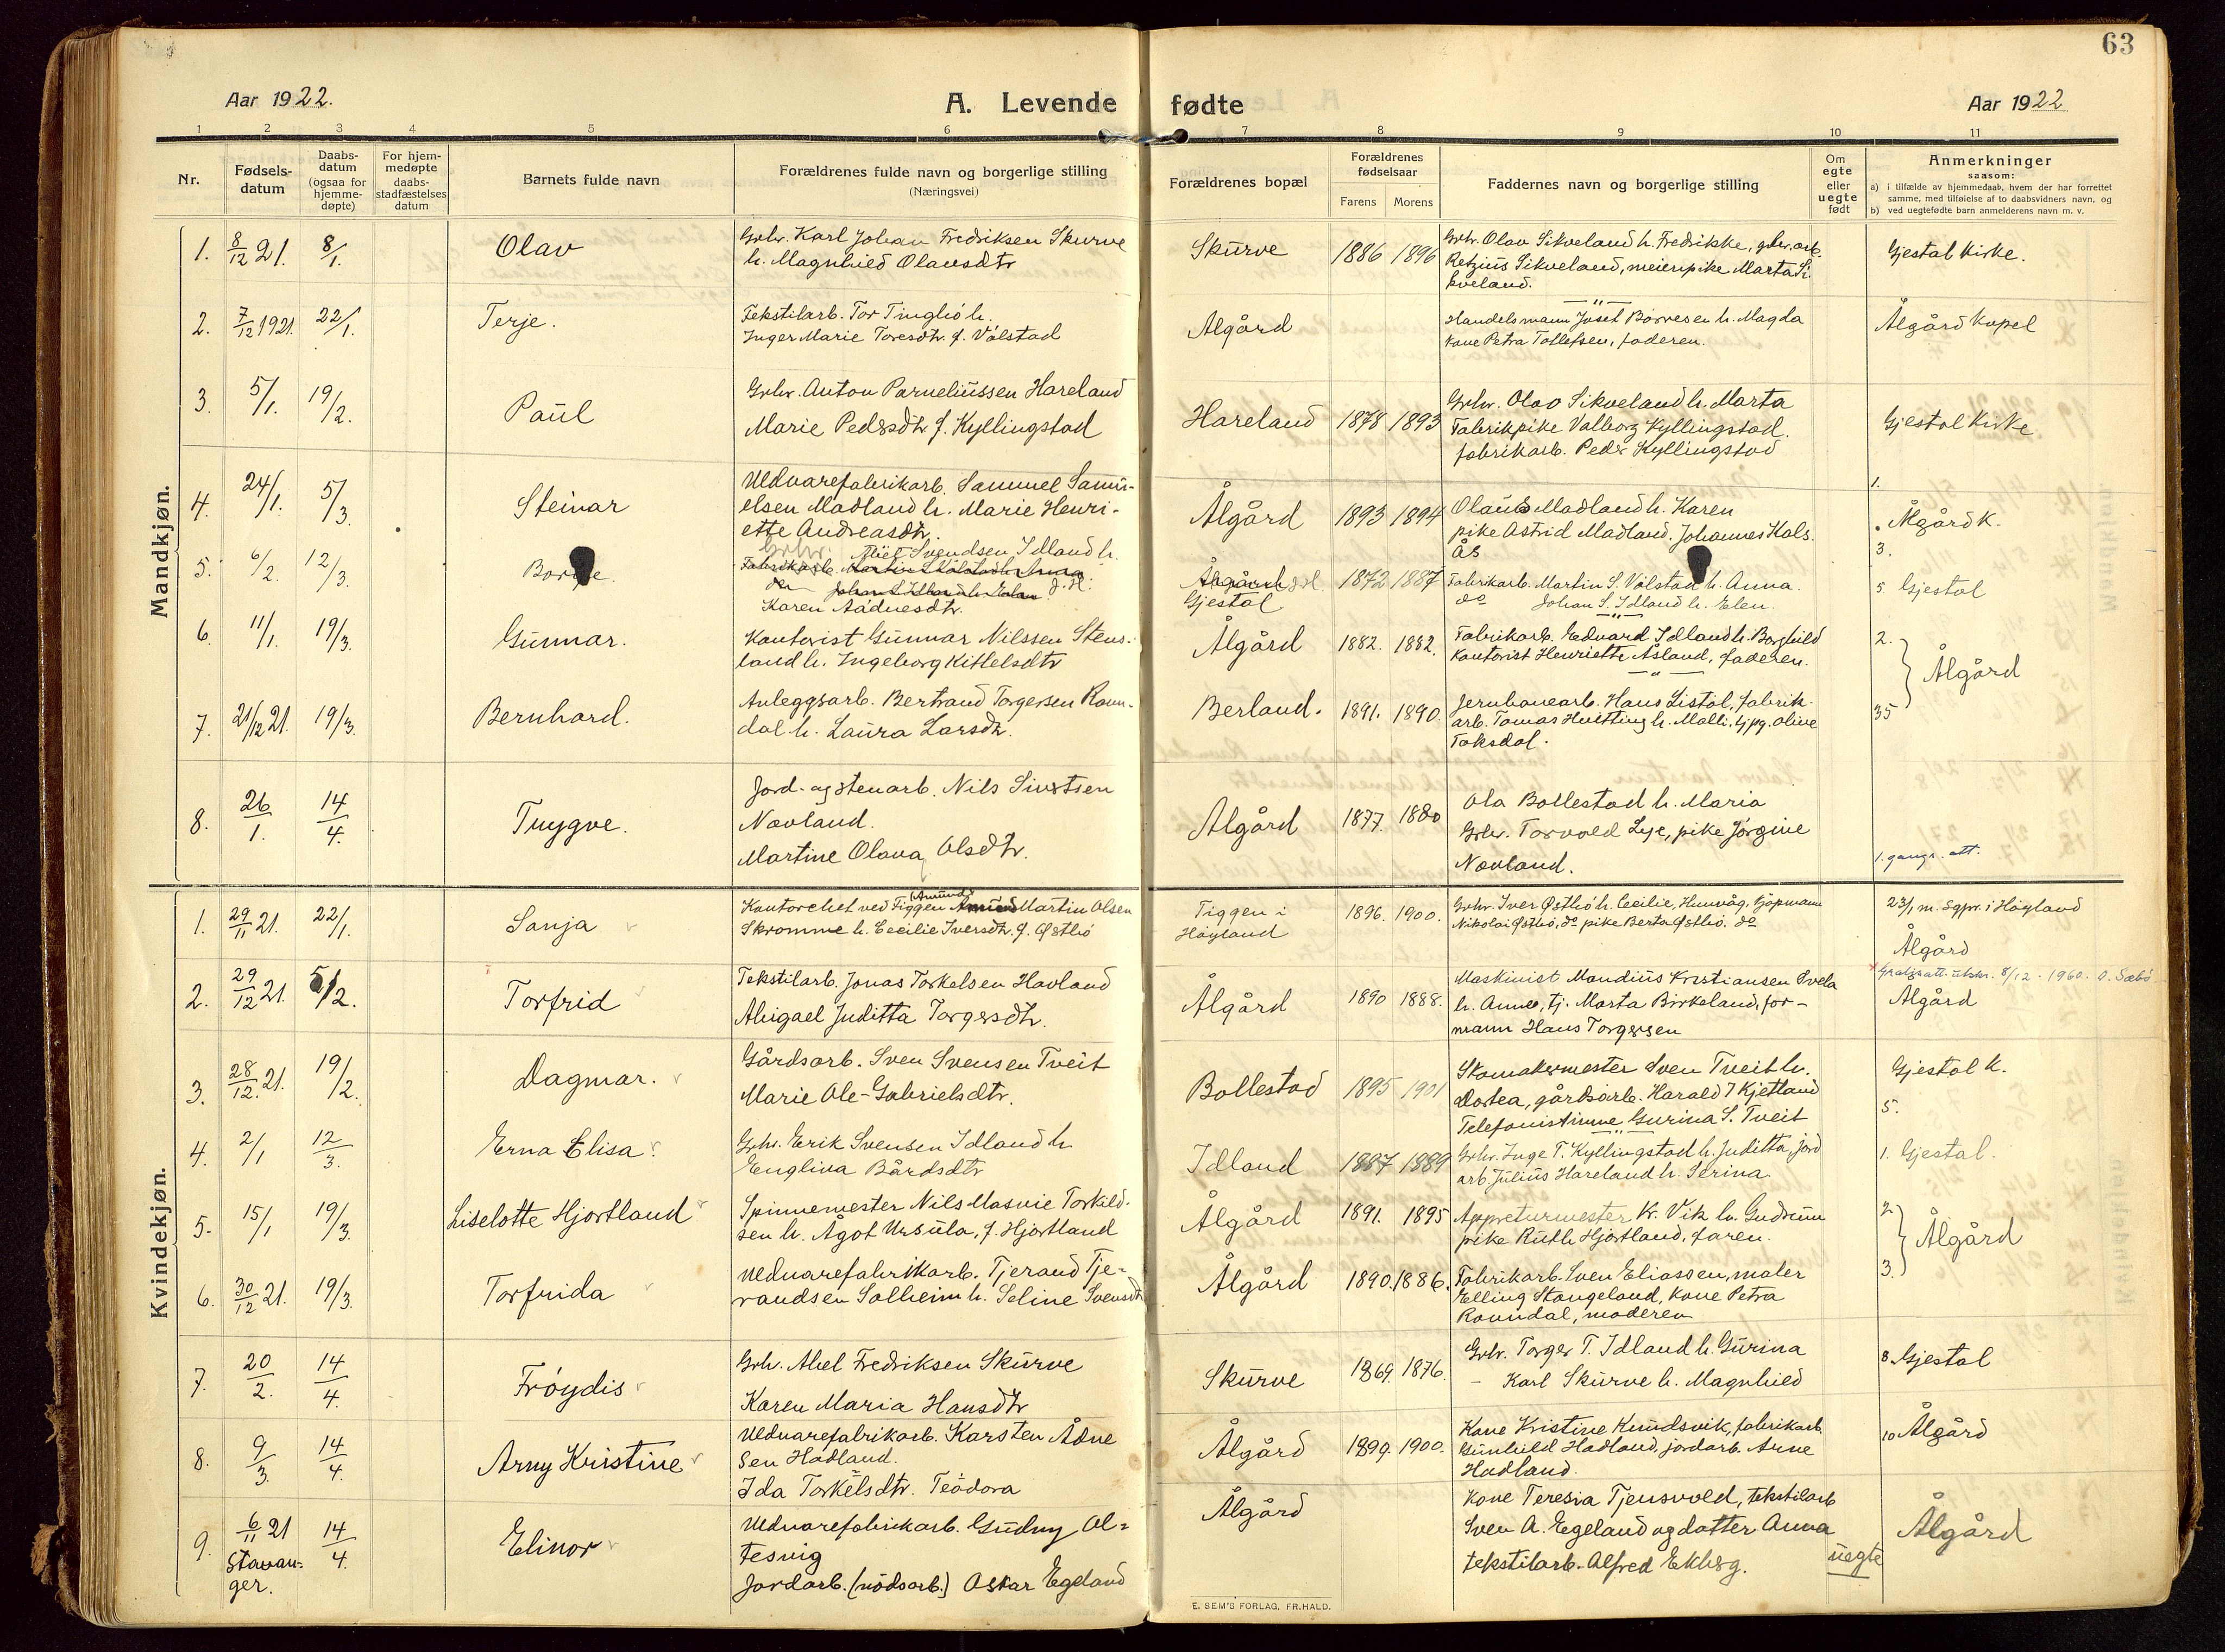 63
Aar 1922.
A. Levende fødte
Aar 1922
1 2 3 4 5 6 7 8 9 10 11
Nr.
Fødsels-
datum
Daabs-
datum
(ogsaa for
hjemme-
døpte)
For hjem-
medøpte
daabs-
stadfæstelses
datum
Barnets fulde navn
Forældrenes fulde navn og borgerlige stilling
(Næringsvei)
Forældrenes bopæl
Forældrenes
fødselsaar
Farens Morens
Faddernes navn og borgerlige stilling
Om
egte
eller
uegte
født
Anmerkninger
saasom:
a) i tilfælde av hjemmedaab, hvem der har forrettet
samme, med tilføielse af to daabsvidners navn, og
b) ved uegtefødte barn anmelderens navn m. v.
Mandkjøn.
1. 8/12 21. 8/1. Olav
Grbr. Karl Johan Fredriksen Skurve
h. Magnhied Olausdtr
Skurve 1886 1896
Grbr. Olav Sikveland h. Fredrikke, gbr. arb.
Retzius Sikveland, meieripike Marta Si-
kveland.
Gjestal kirke.
2. 7/12 1921. 22/1. Terje.
Tekstilarb. Tor Tinghó h.
Inger Marie Toresdtr. f. Vólstad
Ålgård
Handelsmann Josef Bórresen h. Magda
kone Petra Tollefsen, faderen.
Ålgård kapel
3. 5/1. 19/2. Paul
Grbr. Anton Parneliussen Hareland
Marie Pedersdtr f. Kyllingstad
Hareland 1878 1893
Grbr. Olav Sikveland h. Marta
Fabrikpike Valborg Kyllingstad.
fabrikarb. Peder Kyllingstad
Gjestal kirke
4. 24/1. 5/3. Steinar
Uldvarefabrikarb. Samuel Samu-
elsen Madland h. Marie Henri-
ette Andreasdtr.
Ålgård 1893 1894
Olaus Madland h. Karen
pike Astrid Madland. Johannes Kals.
ås
1.
Ålgård k.
3.
5. 6/2. 12/3.
Grbr. Svendsen Idland h.
Fabrikarb.
Karen Aadnesdtr.
Gjestal
1872 1887
Fabrikarb. Martin S. Vólstad h. Anna.
do Johan S. Idland h. Elen.
5 Gjestal
6. 11/1. 19/3. Gunnar.
Kontorist Gunnar Nilssen Stens-
land h. Ingeborg Kittelsdtr
Ålgård 1882. 1882.
Fabrikarb. Edvard Idland h. Borghild
Kontorist Henriette Åsland, faderen.
2.
Ålgård
7. 21/12 21. 19/3. Bernhard.
Anleggsarb. Bertrand Torgersen Raun-
dal h. Laura Larsdtr.
Berland. 1891. 1890.
Jernbanearb. Hans Listól, fabrik-
arb. Tomas Huitting h. Malli. tjpg. Olive
Taksdal.
35
8. 26/1. 14/4. Trygve.
Jord- og stenarb. Nils Sivertsen
Navland.
Martine Olava Olsdtr.
Ålgård 1877. 1880
Ola Bollestad h. Maria
Grbr. Torvald Lye, pike Jórgine
Navland.
1. gangs. att.
Kvindekjøn.
1. 29/11 21. 22/1. Sanja
Kontorchef ved Figgen Amund Martin Olsen
Skromme h. Cecilie Iversdtr. f. Østhó
Figgen i
Hóyland
1896. 1900.
Grbr. Iver Østhó h. Cecilie, Hunvåg, kjøpmann
Nikolai Østhó, do pike Berta Østhó. do
23/1 m. sgpr. i Hóyland
Ålgård
2. 29/12 21. 5/2. Torfrid
Tekstilarb. Jonas Torkelsen Havland
Abigael Juditta Torgersdtr.
Ålgård 1890 1888.
Maskinist Mandius Kristiansen Svela
h. Anne, tj. Marta Birkeland, for-
mann Hans Torgersen
Gratisatt. utskr. 8/12 - 1960. O. Sæbó
Ålgård
3. 28/12. 21. 19/2. Dagmar.
Gårdsarb. Sven Svensen Tveit
Marie Ole-Gabrielsdtr.
Bollestad 1895 1901
Skomakermester Sven Tveit h.
Dortea, gårdsarb. Harald T Kjetland
Telefonistinne Gurina S. Tveit
Gjestal k.
5.
4. 2/1 12/3. Erna Elisa
Grbr. Erik Svensen Idland h
Englina Bårdsdtr
Idland 1887 1889
Grbr. Inge T. Kyllingstad h. Juditta, jord
arb. Julius Hareland h. Serina
1. Gjestal.
5. 15/1 19/3. Liselotte Hjortland
Spinnemester Nils Masvie Torkild-
sen h. Ågot Ursula, f. Hjortland
Ålgård 1891. 1895
Appreturmester Kr. Vik h. Gudrun
pike Ruth Hjortland, faren.
2.
Ålgård
6. 30/12 21. 19/3. Torfrida
Uldvarefabrikarb. Tjerand Tje-
randsen Solheim h. Seline Svensdtr
Ålgård 1890. 1886.
Fabrikarb. Sven Eliassen, maler
Elling Stangeland, kone Petra
Raundal, moderen
3.
7. 20/2. 14/4. Fróydis
Grbr. Abel Fredriksen Skurve
Karen Maria Hansdtr
Skurve 1869. 1876.
Grbr. Torger T. Idland h. Gurina
- Karl Skurve h. Magnhied
8. Gjestal
8. 9/3. 14/4. Arny Kristine
Uldvarefabrikarb. Karsten Ådne
sen Hadland.
Ida Torkelsdtr. Teódora
Ålgård 1899. 1900.
Kone Kristine Knudsvik, fabrikarb.
Gunhild Hadland, jordarb. Arne
Hadland.
10 Ålgård
9. 6/11 21 Stavan-
ger. 14/4. Elinor
Uldvarefabrikarb. Gudny Al-
tesvig
Jordarb. (nódsarb.) Oskar Egeland
Ålgård
Kone Teresia Tjensvold, tekstilarb
Sven A. Egeland og datter Anna
tekstilarb. Alfred Ekberg.
uegte
Ålgård
E. SEM'S FORLAG, FR.HALD.